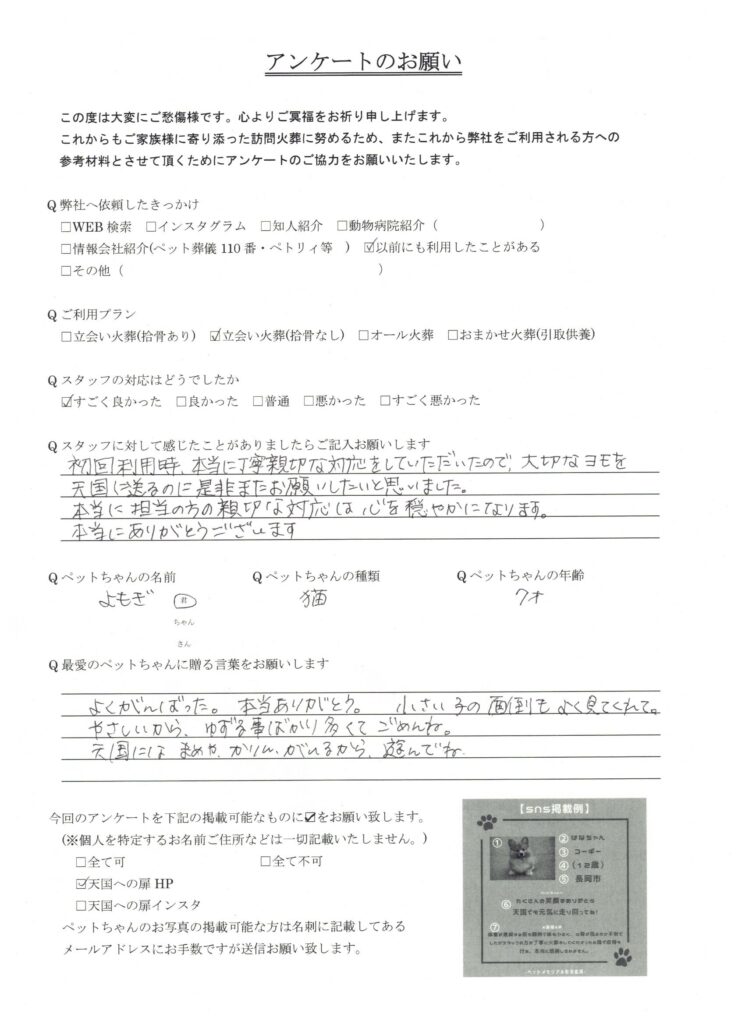 アンケートのお願い
この度は大変にご愁傷様です。心よりご冥福をお祈り申し上げます。
これからもご家族様に寄り添った訪問火葬に努めるため、またこれから弊社をご利用される方への
参考材料とさせて頂くためにアンケートのご協力をお願いいたします。
Q 弊社へ依頼したきっかけ
□WEB 検索 □インスタグラム □知人紹介 □動物病院紹介（ ）
□情報会社紹介(ペット葬儀 110 番・ペトリィ等 ) ☑以前にも利用したことがある
□その他（ ）
Q ご利用プラン
□立会い火葬(拾骨あり) ☑立会い火葬(拾骨なし) □オール火葬 □おまかせ火葬(引取供養)
Q スタッフの対応はどうでしたか
☑すごく良かった □良かった □普通 □悪かった □すごく悪かった
Q スタッフに対して感じたことがありましたらご記入お願いします
初回利用時、本当に丁寧親切な対応をしていただいたので、大切なヨモを
天国に送るのに是非またお願いしたいと思いました。
本当に担当の方の親切な対応は心を穏やかになります。
本当にありがとうございます
Q ペットちゃんの名前 Q ペットちゃんの種類 Q ペットちゃんの年齢
よもぎ 猫 7才
ちゃん
さん
Q 最愛のペットちゃんに贈る言葉をお願いします
よくがんばった。本当ありがとう。 小さい子の面倒もよく見てくれて。
やさしいから、ゆずる事ばかり多くてごめんね。
天国にはまめや、かりん、がいるから、遊んでね
今回のアンケートを下記の掲載可能なものに☑をお願い致します。
(※個人を特定するお名前ご住所などは一切記載いたしません。)
□全て可 □全て不可
☑天国への扉 HP
□天国への扉インスタ
ペットちゃんのお写真の掲載可能な方は名刺に記載してある
メールアドレスにお手数ですが送信お願い致します。
【sns掲載例】
①
② はなちゃん
③ コーギー
④ （12歳）
⑤ 長岡市
⑥ たくさんの笑顔をありがとう
天国でも元気に走り回ってね！
⑦